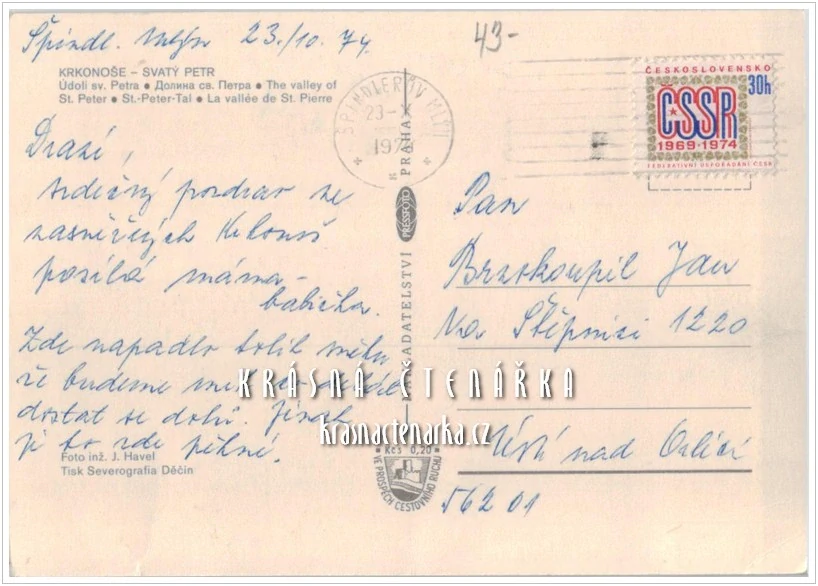 Špindl. Mlýn 23./10. 74.
43-
KRKONOŠE – SVATÝ PETR
Údolí sv. Petra ● Долина св. Петра ● The valley of
St. Peter ● St.-Peter-Tal ● La vallée de St. Pierre
Drazí,
srdečný pozdrav ze
zasněžených Krkonoš
posílá máma –
babička.
Zde napadlo tolik sněhu
že budeme mít
dostat se dolů. Jinak
je to zde pěkné.
Foto inž. J. Havel
Tisk Severografia Děčín
ŠPINDLERŮV MLÝN
23.-X
197
ČESKOSLOVENSKO
30h
ČSSR
1969-1974
FEDERATIVNÍ USPOŘÁDÁNÍ ČSSR
PRAHA
PRESSFOTO
NAKLADATELSTVÍ
Kčs 0,20
VE PROSPĚCH CESTOVNÍHO RUCHU
Pan
Brzokoupil Jan
Na Štěpnici 1220
Ústí nad Orlicí
562 01
KRÁSNÁ ČTENÁŘKA
krasnactenarka.cz